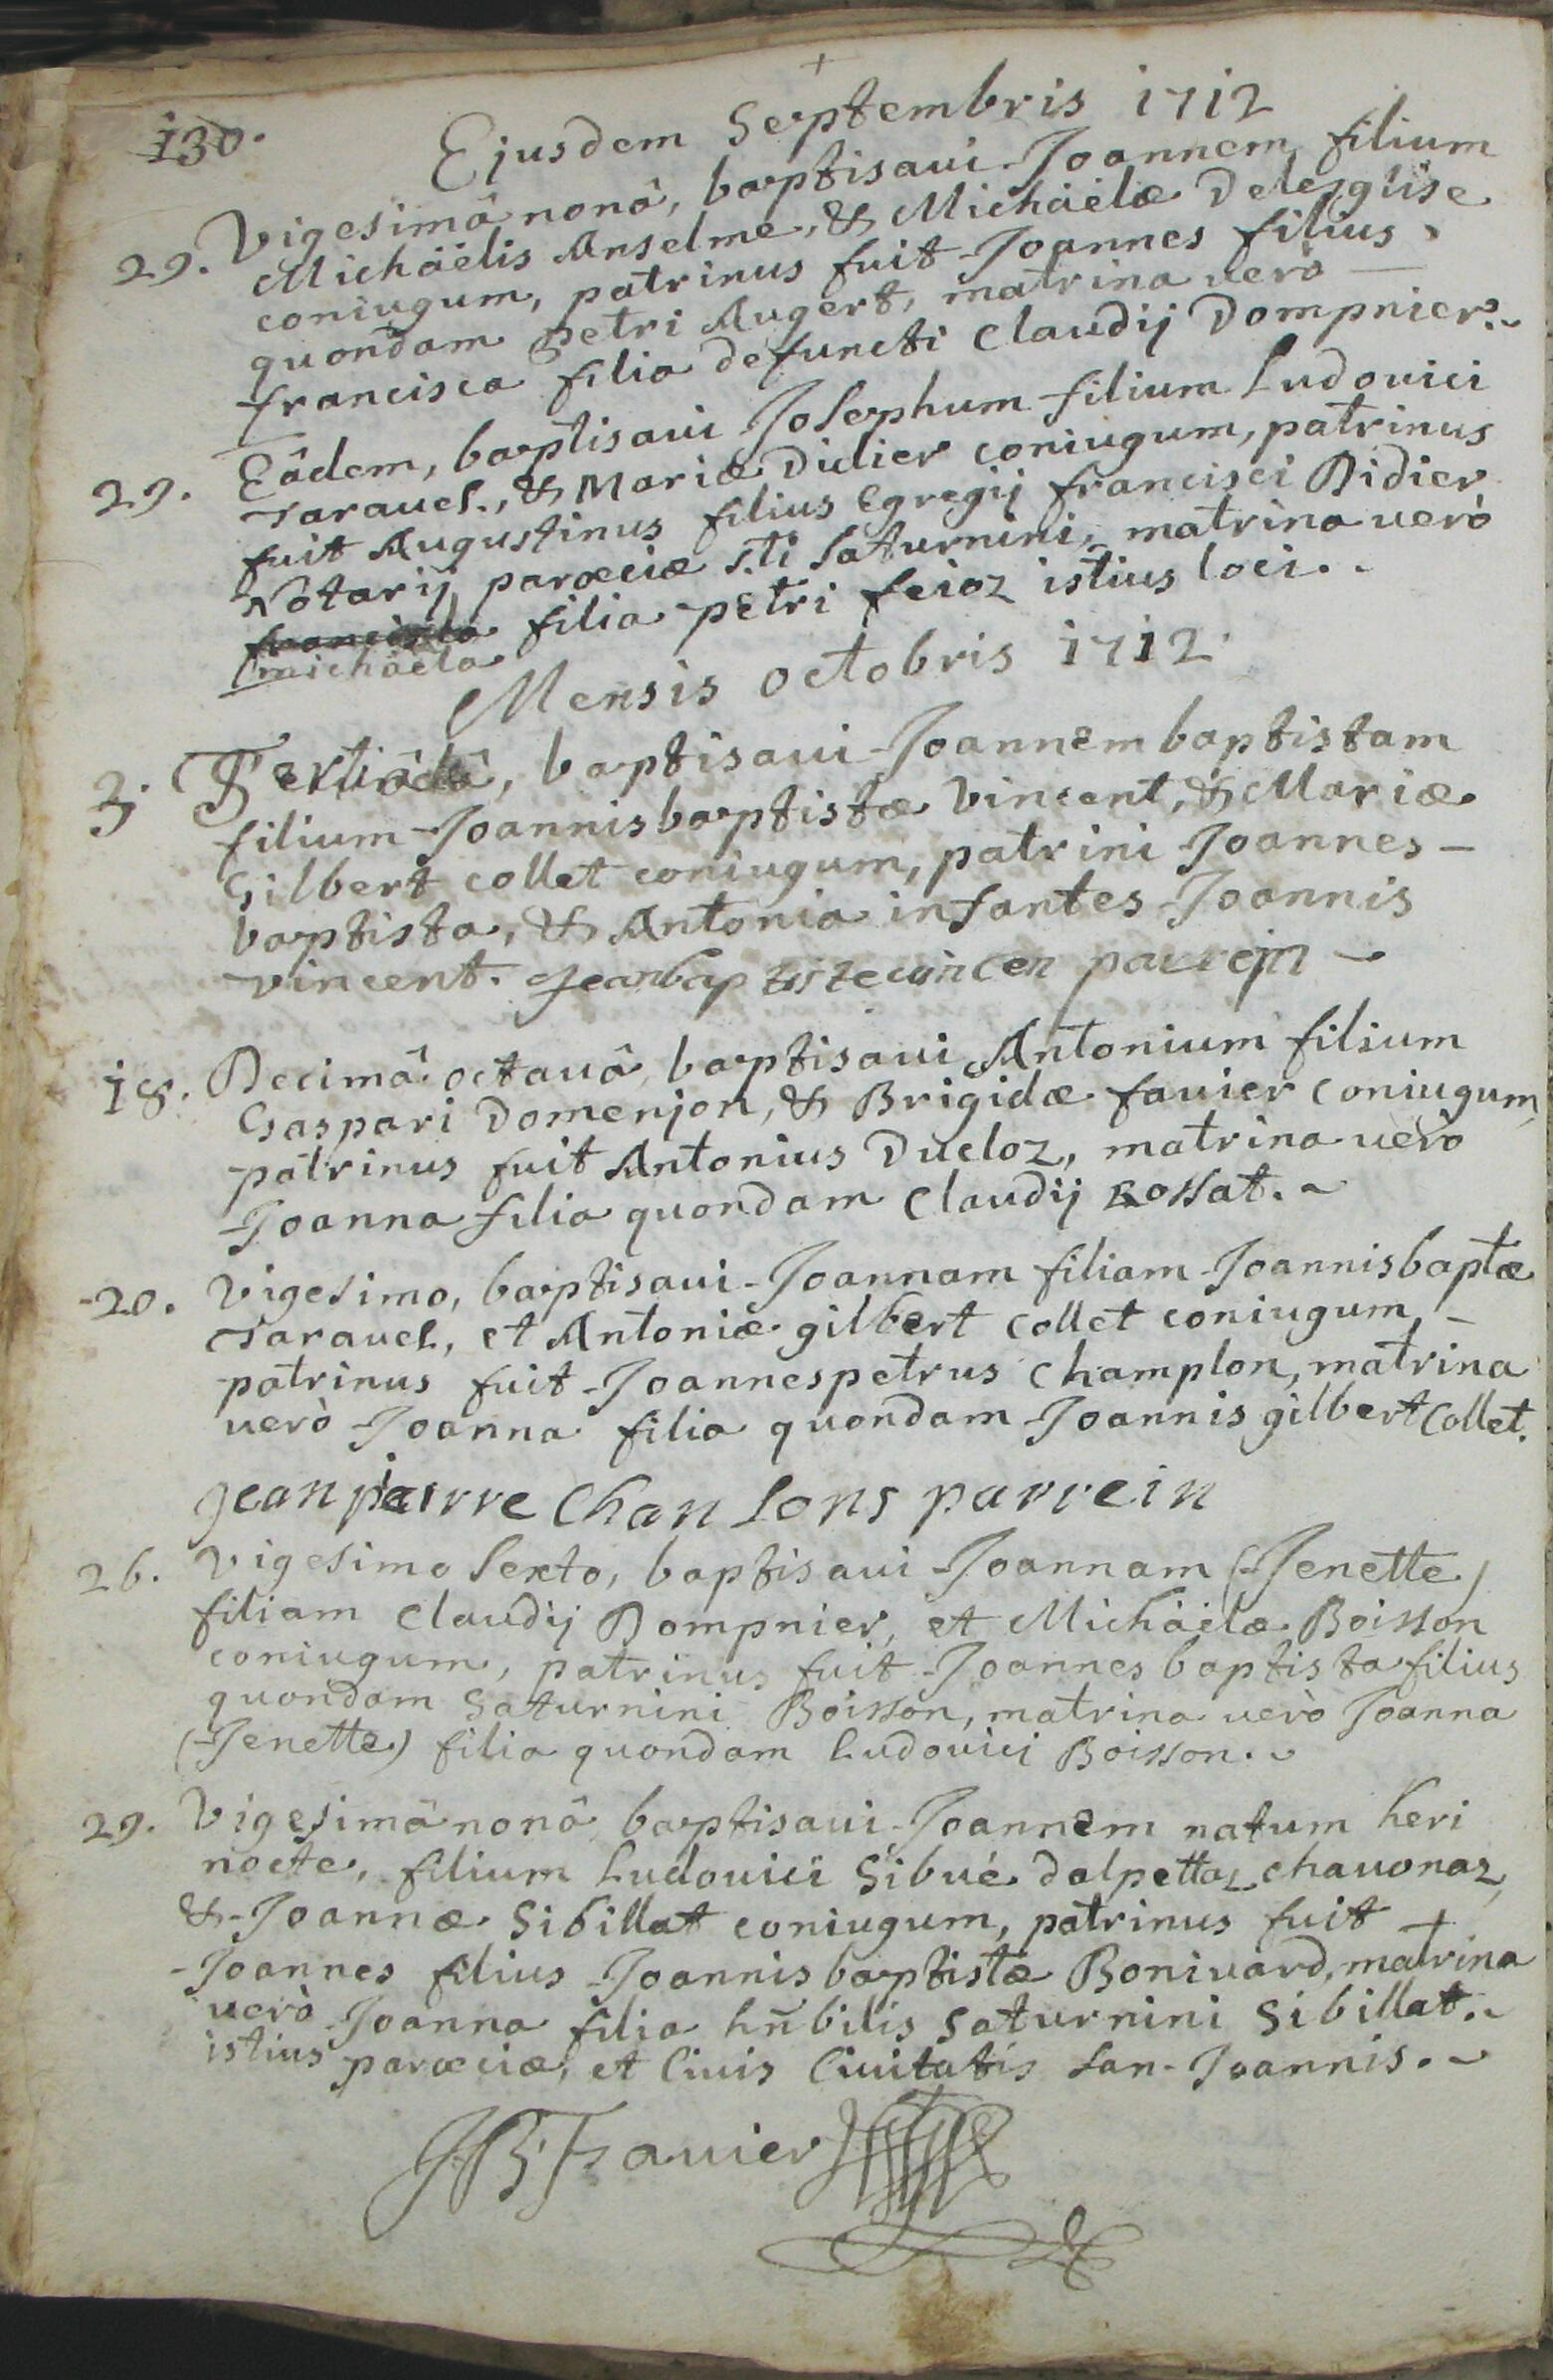 130.
Ejusdem Septembris 1712
29. Vigesimâ nonâ, baptisaui Joannem filium
Michäelis Anselme, & Michäelæ Delesglise
coniugum, patrinus fuit Joannes filius
quondam petri Augert, matrina verò
francisca filia defuncti Claudij Dompnier.
29. Eâdem, baptisaui Josephum filium Ludouici
Tarauel., & Mariæ Didier coniugum, patrinus
fuit Augustinus filius Egregij francisci Didier
Notarij parœciæ S.ti Saturnini, matrina uerò
francisca filia petri feioz istius loci.
michäela
Mensis octobris 1712
3. Tertiâ, baptisaui Joannem baptistam
filium Joannisbaptistæ Vincent, & Mariæ
Gilbert collet coniugum, patrini Joannes-
baptista, & Antonia infantes Joannis
vincent. Jeanbaptiste vincen parrejn
18. Decimâ octauâ, baptisaui Antonium filium
Gaspari Domenjon, & Brigidæ fauier coniugum,
patrinus fuit Antonius Ducloz, matrina uerò
Joanna filia quondam Claudij Rossat.
20. Vigesimo, baptisaui Joannam filiam Joannisbaptæ
Tarauel, et Antoniæ gilbert collet coniugum,
patrinus fuit Joannespetrus Champlon, matrina
uerò Joanna filia quondam Joannis gilbert Collet.
jean pierre Chan Lons parrein
26. Vigesimo sexto, baptisaui Joannam (Jenette)
filiam Claudij Dompnier, et Michäelæ Boisson
coniugum, patrinus fuit Joannes baptista filius
quondam Saturnini Boisson, matrina uerò Joanna
(Jenette) filia quondam Ludouici Boisson.
29. Vigesimâ nonâ baptisaui Joannem natum heri
nocte, filium Ludouici Sibué dalpettaz chauonaz,
& Joannæ Sibillat coniugum, patrinus fuit
Joannes filius Joannis baptistæ Boniuard, matrina
uerò Joanna filia hñbilis Saturnini Sibillat.
istius parœciæ, et Ciuis Ciuitatis San-Joannis.
JB Fauier